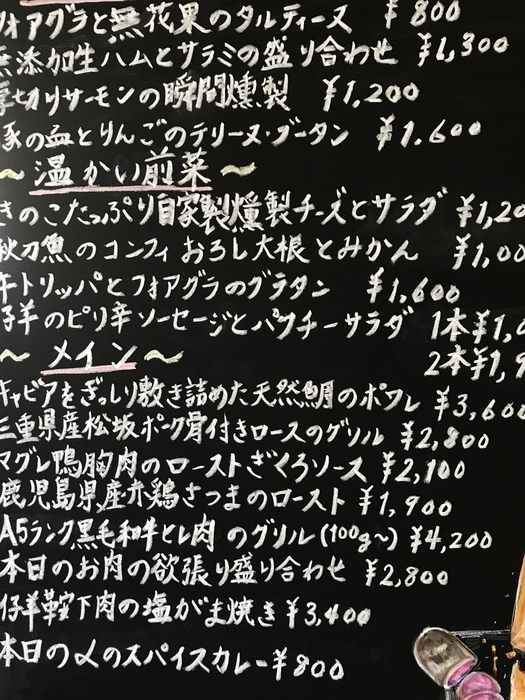 フォアグラと無花果のタルティーヌ ¥800
無添加生ハムとサラミの盛り合わせ ¥1,300
厚切りサーモンの瞬間燻製 ¥1,200
豚の血とりんごのテリーヌ・ブータン ¥1,600
~ 温かい前菜 ~
きのこたっぷり自家製燻製チーズとサラダ ¥1,20
秋刀魚のコンフィ おろし大根とみかん ¥1,00
牛トリッパとフォアグラのグラタン ¥1,600
仔羊のピリ辛ソーセージとパクチーサラダ 1本¥1,
2本¥1,9
~ メイン ~
キャビアをぎっしり敷き詰めた天然鯛のポワレ ¥3,600
三重県産松坂ポーク骨付きロースのグリル ¥2,800
マグレ鴨胸肉のローストざくろソース ¥2,100
鹿児島県産赤鶏さつまのロースト ¥1,900
A5ランク黒毛和牛ヒレ肉のグリル(100g~) ¥4,200
本日のお肉の欲張り盛り合わせ ¥2,800
仔羊鞍下肉の塩がま焼き ¥3,400
本日の〆のスパイスカレー ¥800